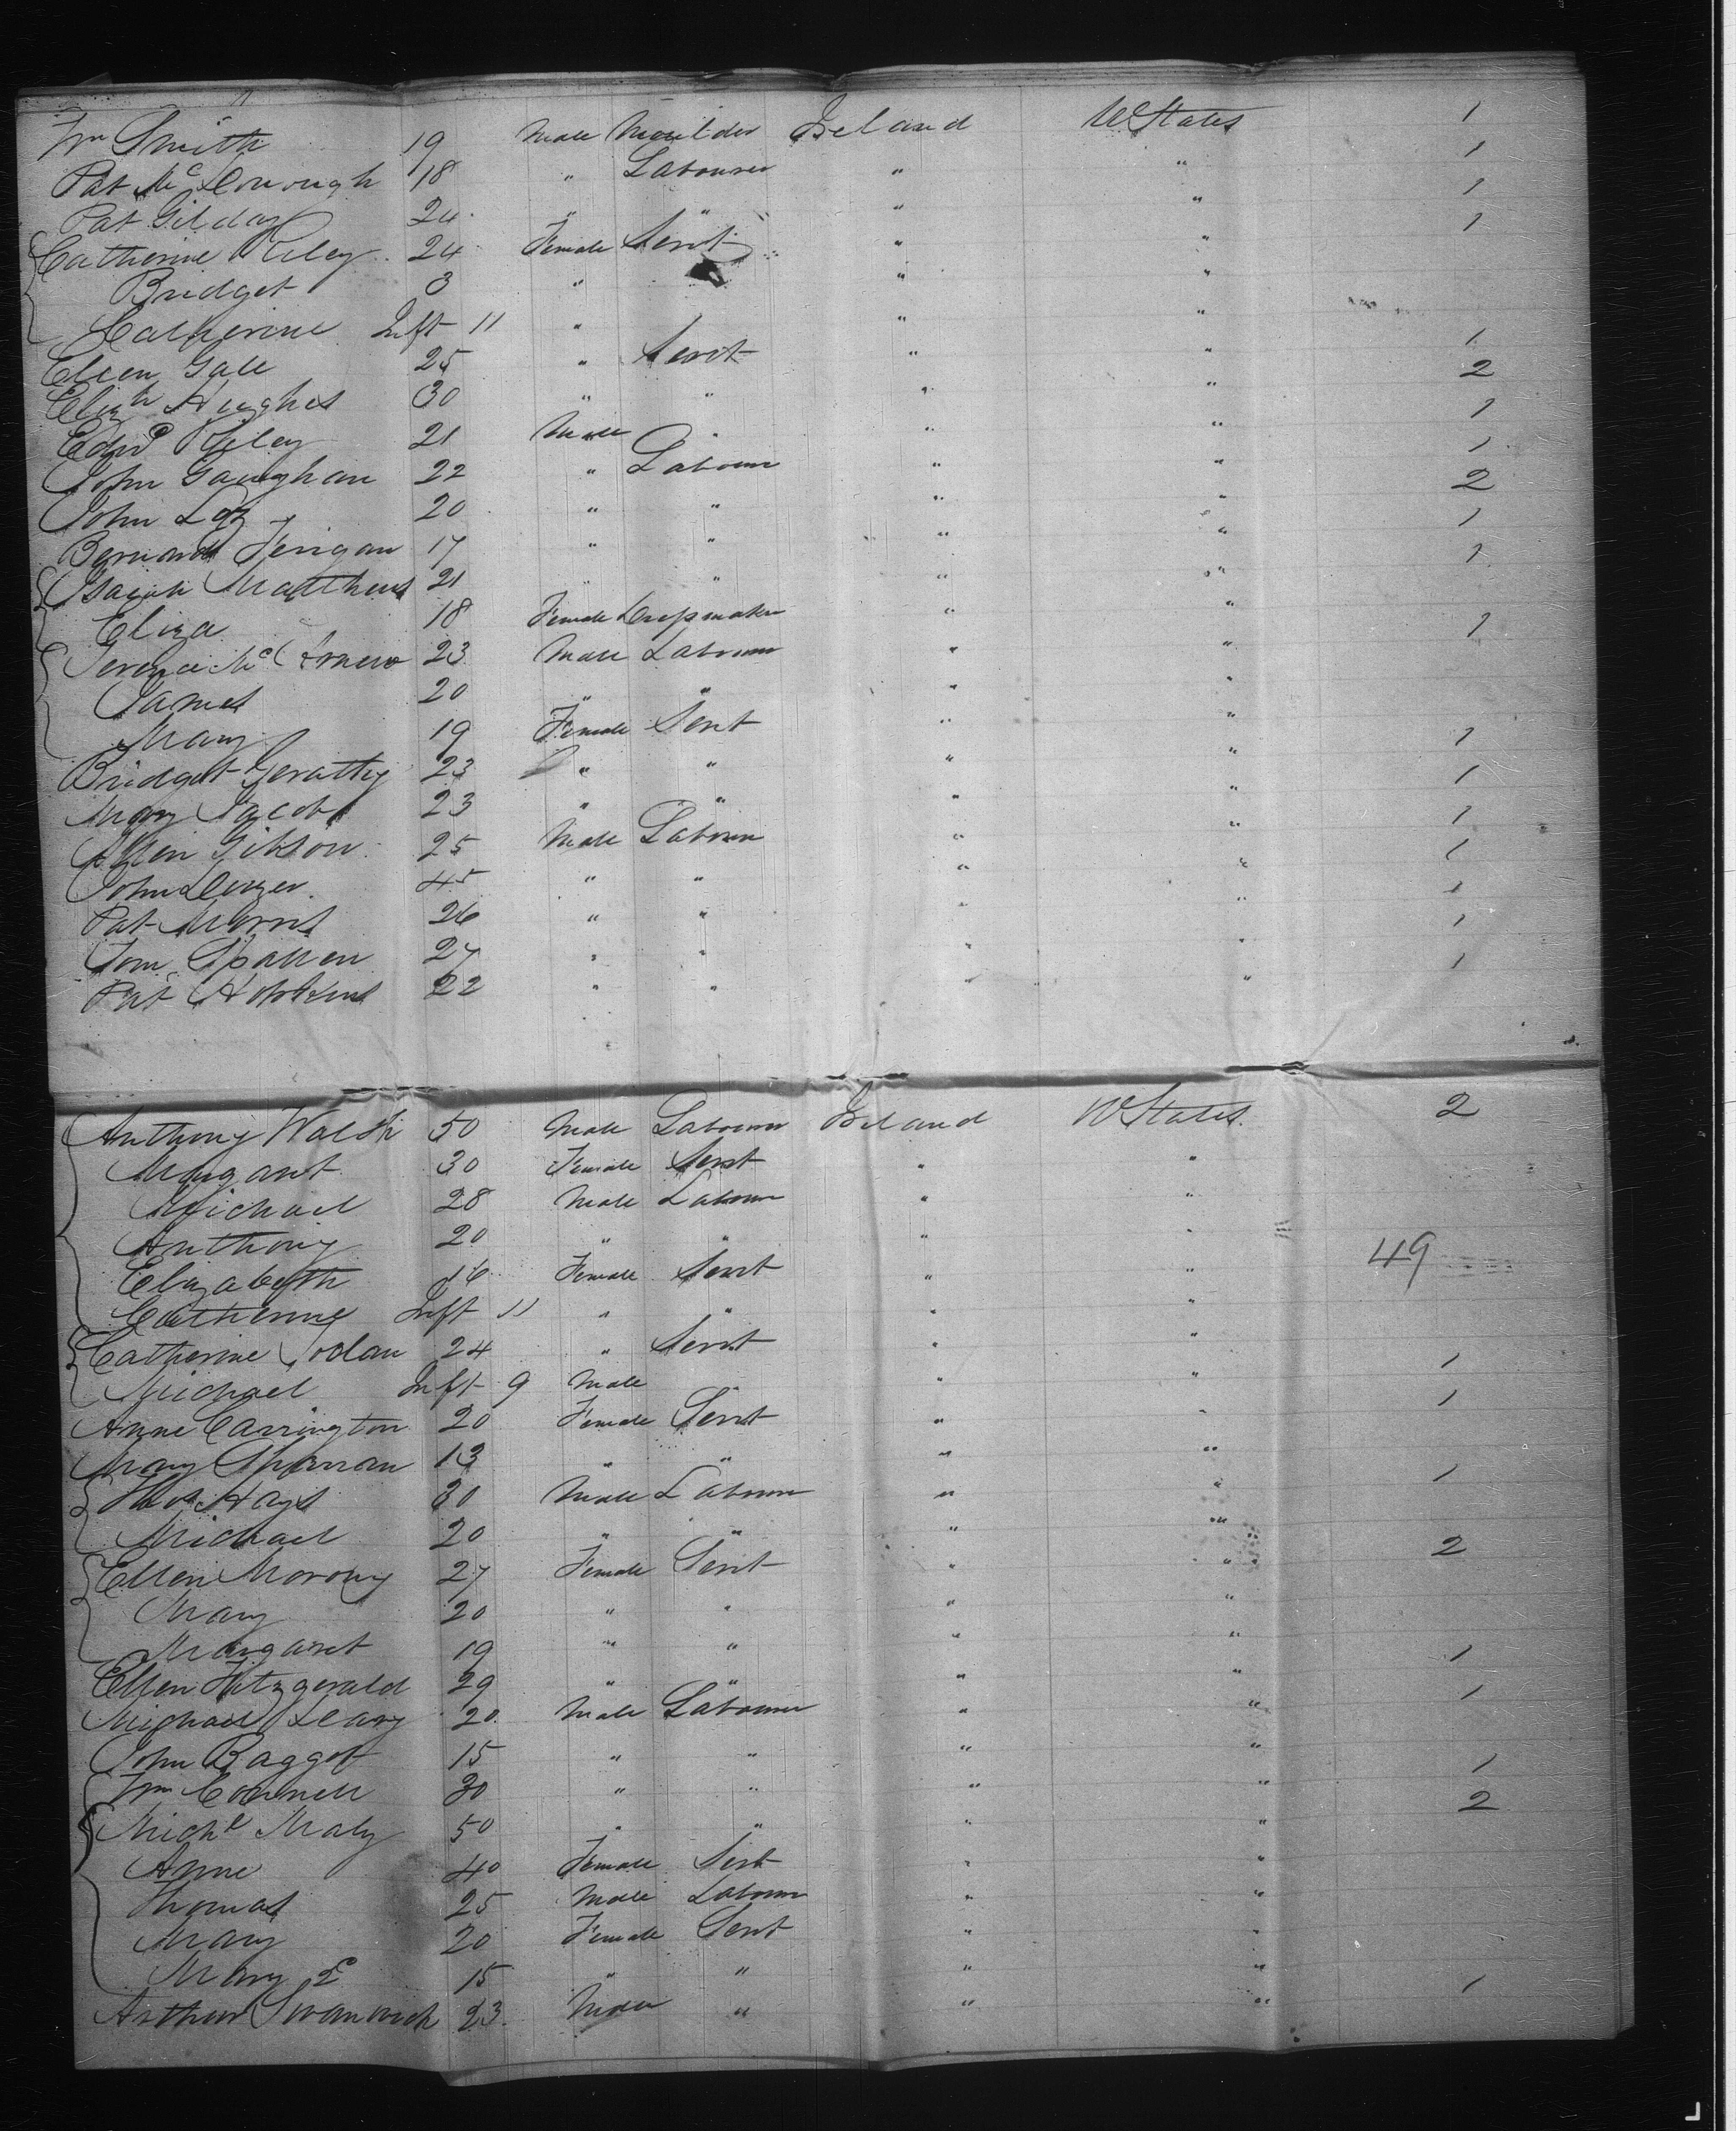 Wm Smith 19 Male Moulder Ireland U States 1
Pat McDonough 18 " Labourer " " 1
Pat Gilday 24 " " " " 1
Catherine Riley 24 Female Servt " " 1
Bridget 3 " " "
Catherine Inft 11 " " "
Ellen Gall 25 " Servt " " 1
Elizh Hughes 30 " " " " 2
Edwd Riley 21 Male " " " 1
John Gaughan 22 " Labour " " 1
John 20 " " " " 2
Bernard Ferigan 17 " " " " 1
Isaiah Matthews 21 " " " " 1
Eliza 18 Female Dressmaker " "
Terence Mc 23 Male Labour " " 1
James 20 " " " "
Mary 19 Female Servt " "
Bridget Geratty 23 " " " " 1
Mary Jacobs 23 " " " " 1
Allen Gibson 25 Male Labour " " 1
John 45 " " " " 1
Pat Morris 26 " " " " 1
Tom Spallen 27 " " " " 1
Pat Hopkins 22 " " " " 1
Anthony Walsh 50 Male Labourer Ireland U States. 2
Margaret 30 Female Servt " "
Michael 28 Male Labour " "
Anthony 20 " " " "
Elizabeth 16 Female Servt " " 49
Catherine Inft 11 " " " "
Catherine Jodan 24 " Servt " "
Michael Inft 9 Male " " 1
Anne Carrington 20 Female Servt " " 1
Mary 13 " " " "
Thos Hays 30 Male Labour " " 1
Michael 20 " " " "
Ellen Morony 27 Female Servt " " 2
Mary 20 " " " "
Margaret 19 " " " "
Ellen Fitzgerald 29 " " " " 1
Michael Leary 20 Male Labourer " " 1
John Baggot 15 " " " "
Wm Connell 30 " " " " 1
Michl Maly 50 " " " " 2
Anne 40 Female Servt " "
Thomas 25 Male Labour " "
Mary 20 Female Servt " "
Mary E 15 " " " "
Arthur Swanwick 23 Male " " " 1